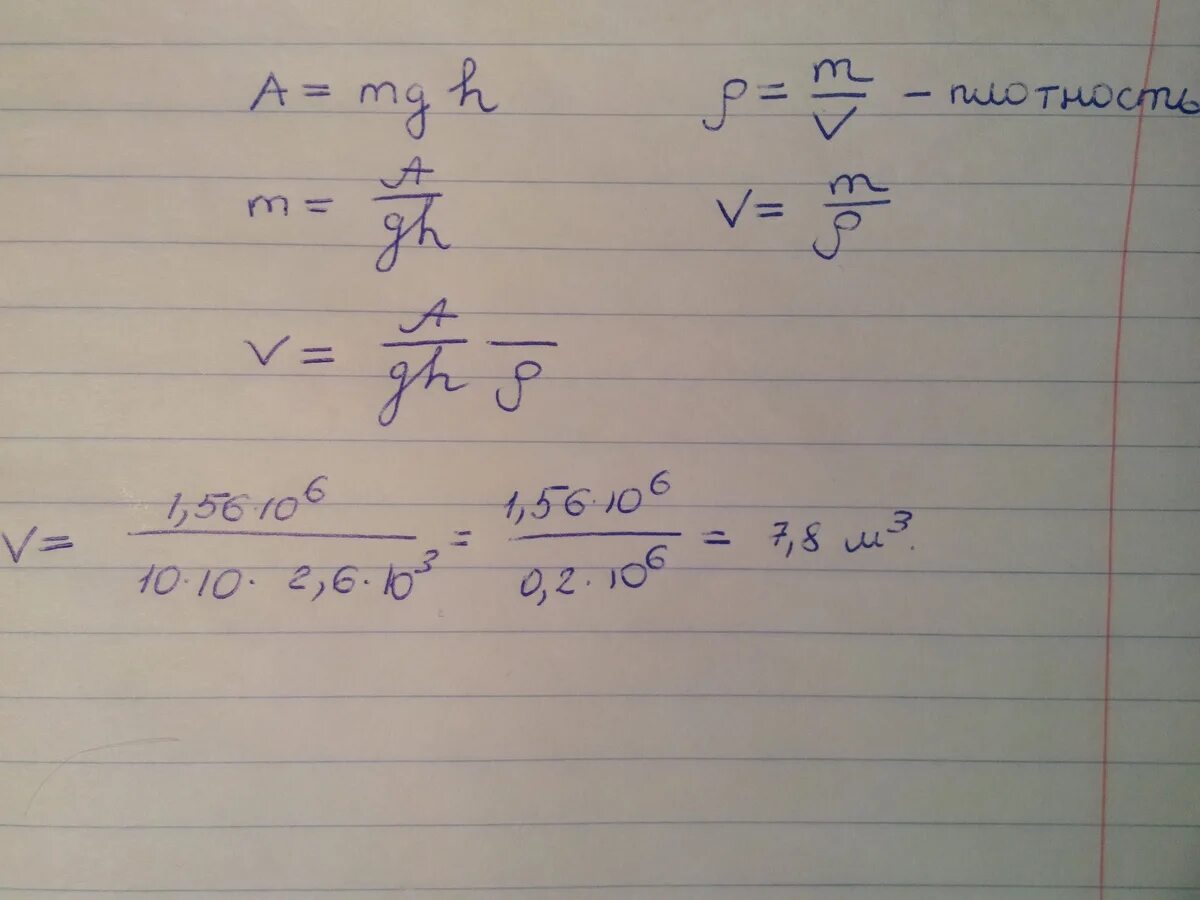 A = mgh
ρ = m/V - плотность
m = A/gh
V = m/ρ
V = A/gh —/ρ
V = 1,56·10⁶/10·10· 2,6·10³ = 1,56·10⁶/0,2·10⁶ = 7,8 м³.